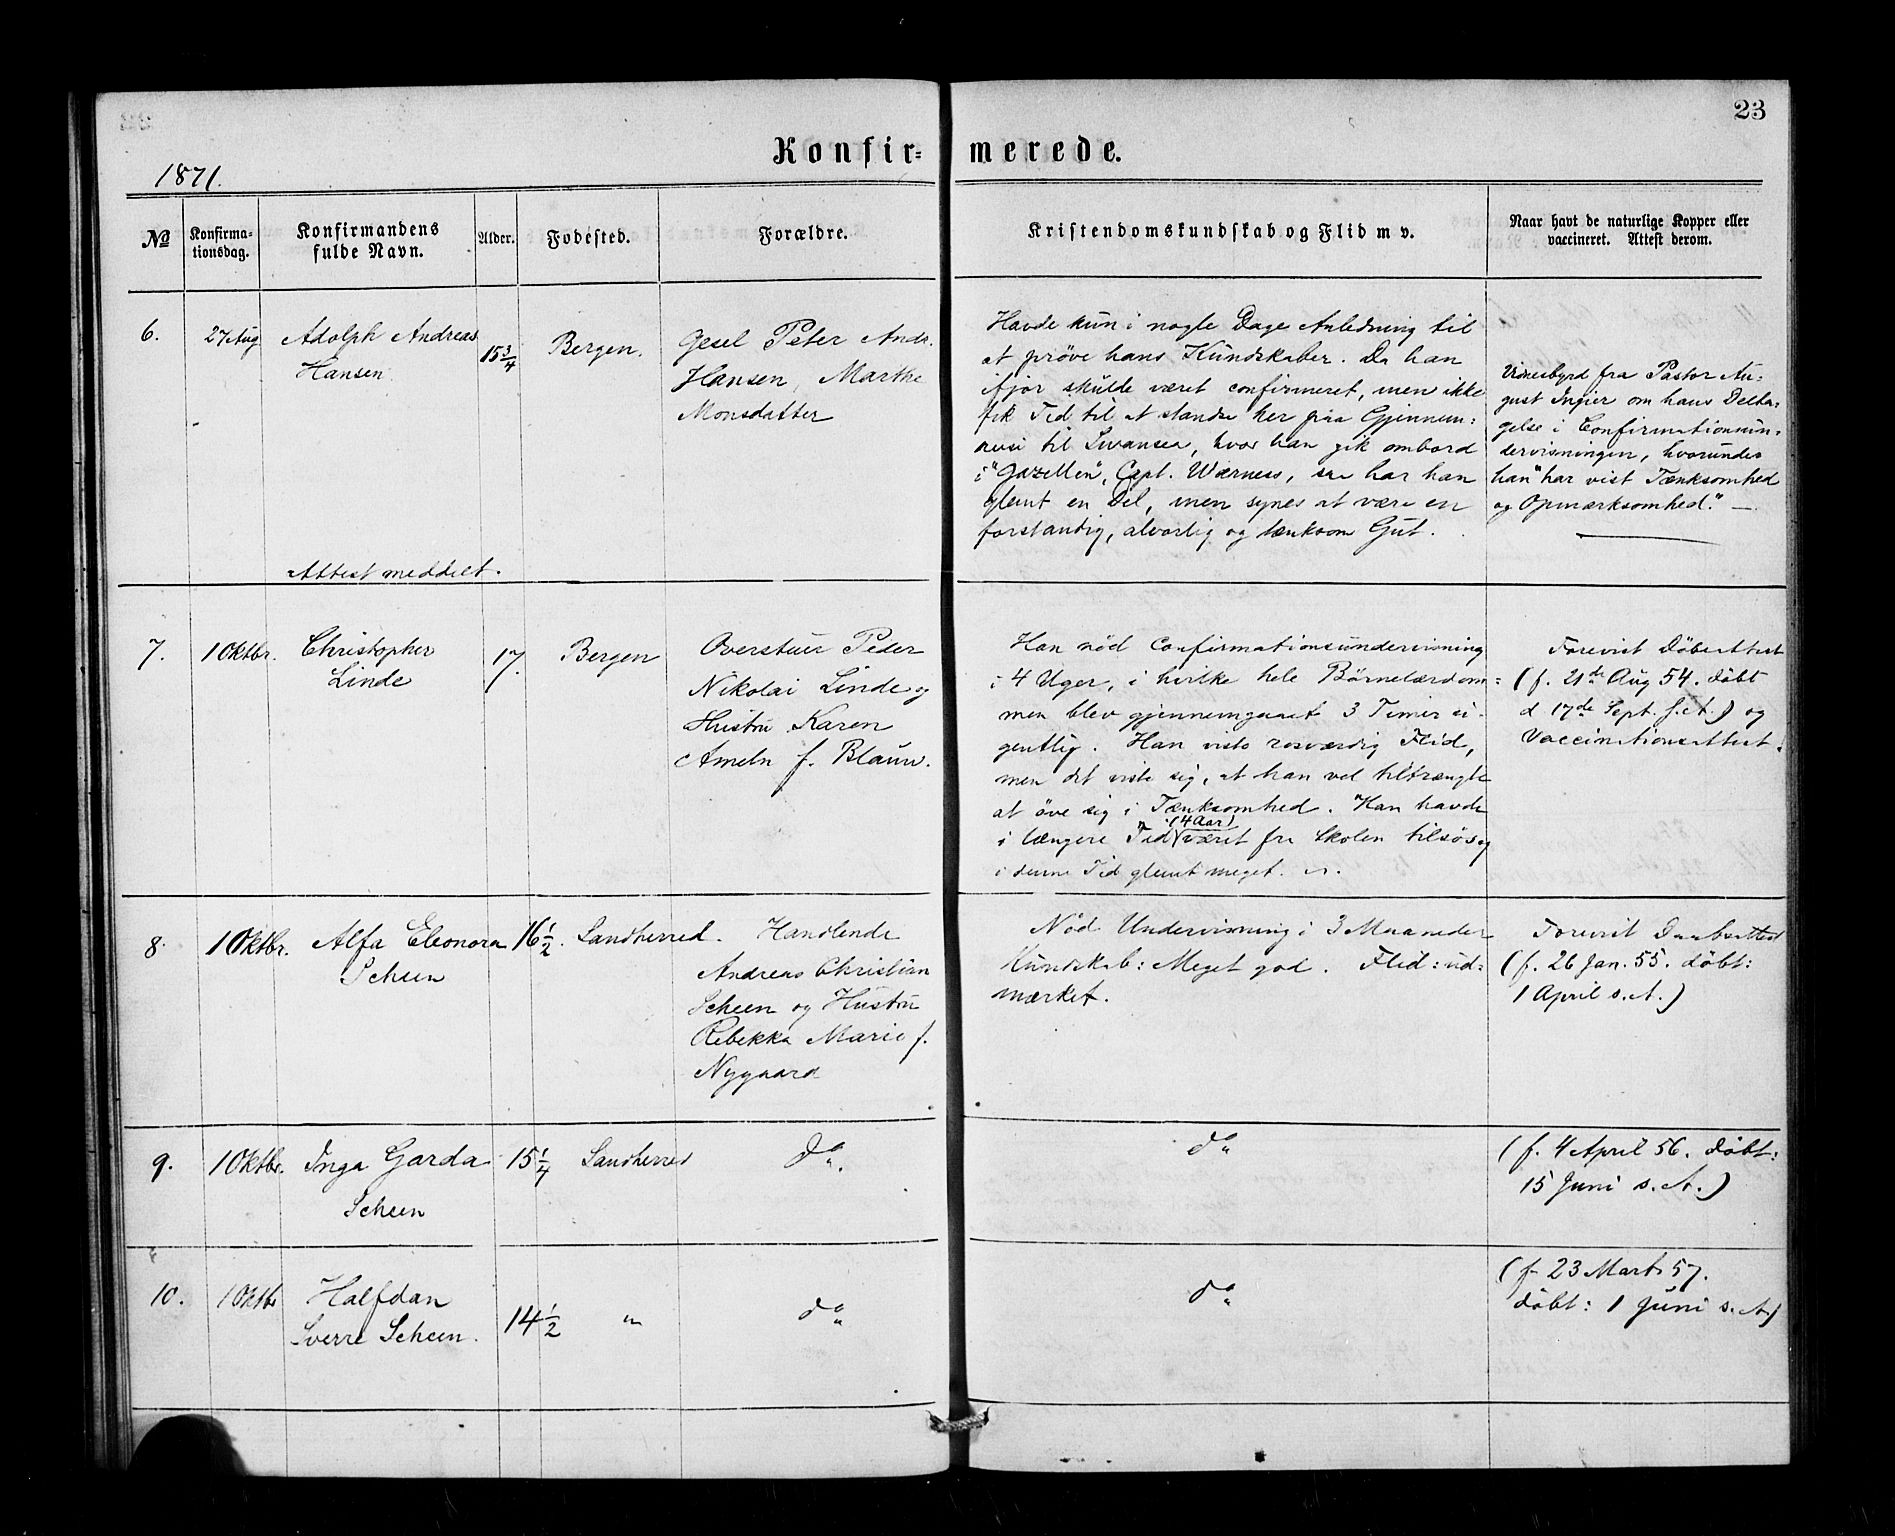 23
Konfir- merede.
1871.
No
Konfirma-
tionsdag.
Konfirmandens
fulde Navn.
Alder.
Fødested.
Forældre.
Kristendomskundskab og Flid m v.
Naar havt de naturlige Kopper eller
vaccineret. Attest derom.
6.
27 Aug
Adolph Andreas
Hansen
Attest meddelt.
15 3/4
Bergen.
Gesel Peter Andr.
Hansen, Marthe
Monsdatter
Havde kun i nogle Dage Anledning til
at pröve hans Kundskaber. Da han
ifjor skulde været confirmeret, men ikke
fik Tid til at standse her paa Gjennem-
til Swansea, hvor han gik ombord
i "Gazellen", Capt. Wærness, saa har han
glemt en Del, men synes at være en
forstandig, alvorlig og tænksom Gut.
Vidnesbyrd fra Pastor Au-
gust Ingier om hans Delta-
gelse i Confirmationsun-
dervisningen, hvorunder
han "har vist Tænksomhed
og Opmærksomhed." —
7.
1 Oktbr.
Christopher
Linde
17.
Bergen
Overstuer Peder
Nikolai Linde og
Hustru Karen
Ameln f. Blauw.
Han nöd Confirmationsundervisning
i 4 Uger, i hvilke hele Börnelærdom-
men blev gjennemgaaet 3 Timer ei-
gentlig. Han viste rosværdig Flid,
men det viste sig, at han vel tiltrængte
at öve sig i Tænksomhed. Han havde
i længere Tid (4 Aar) været fra Skolen tilsös og
i denne Tid glemt meget.
Forevist Döbeattest
(f. 21de Aug 54. döbt
d 17de Sept. s. A.) og
Vaccinationsattest.
8.
1 Oktbr.
Alfa Eleonora
Scheen
16 1/2.
Sandherred.
Handlende
Andreas Christian
Scheen og Hustru
Rebekka Marie f.
Nygaard
Nöd Undervisning i 3 Maaneder
Kundskab: Meget god. Flid: ud-
mærket.
Forevist Daabsattest
(f. 26 Jan. 55. döbt:
1 April s. A.)
9.
1 Oktbr.
Inga Garda
Scheen
15 1/4
Sandherred
do.
do
(f. 4 April 56. döbt:
15 Juni s. A.)
10.
1 Oktbr
Halfdan
Sverre Scheen.
14 1/2
"
do
do
(f 23 Marts 57.
döbt: 1 Juni s. A.)